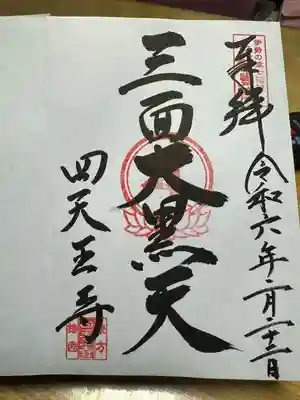 奉拝
令和六年二月二十二日
三面大黒天
四天王寺